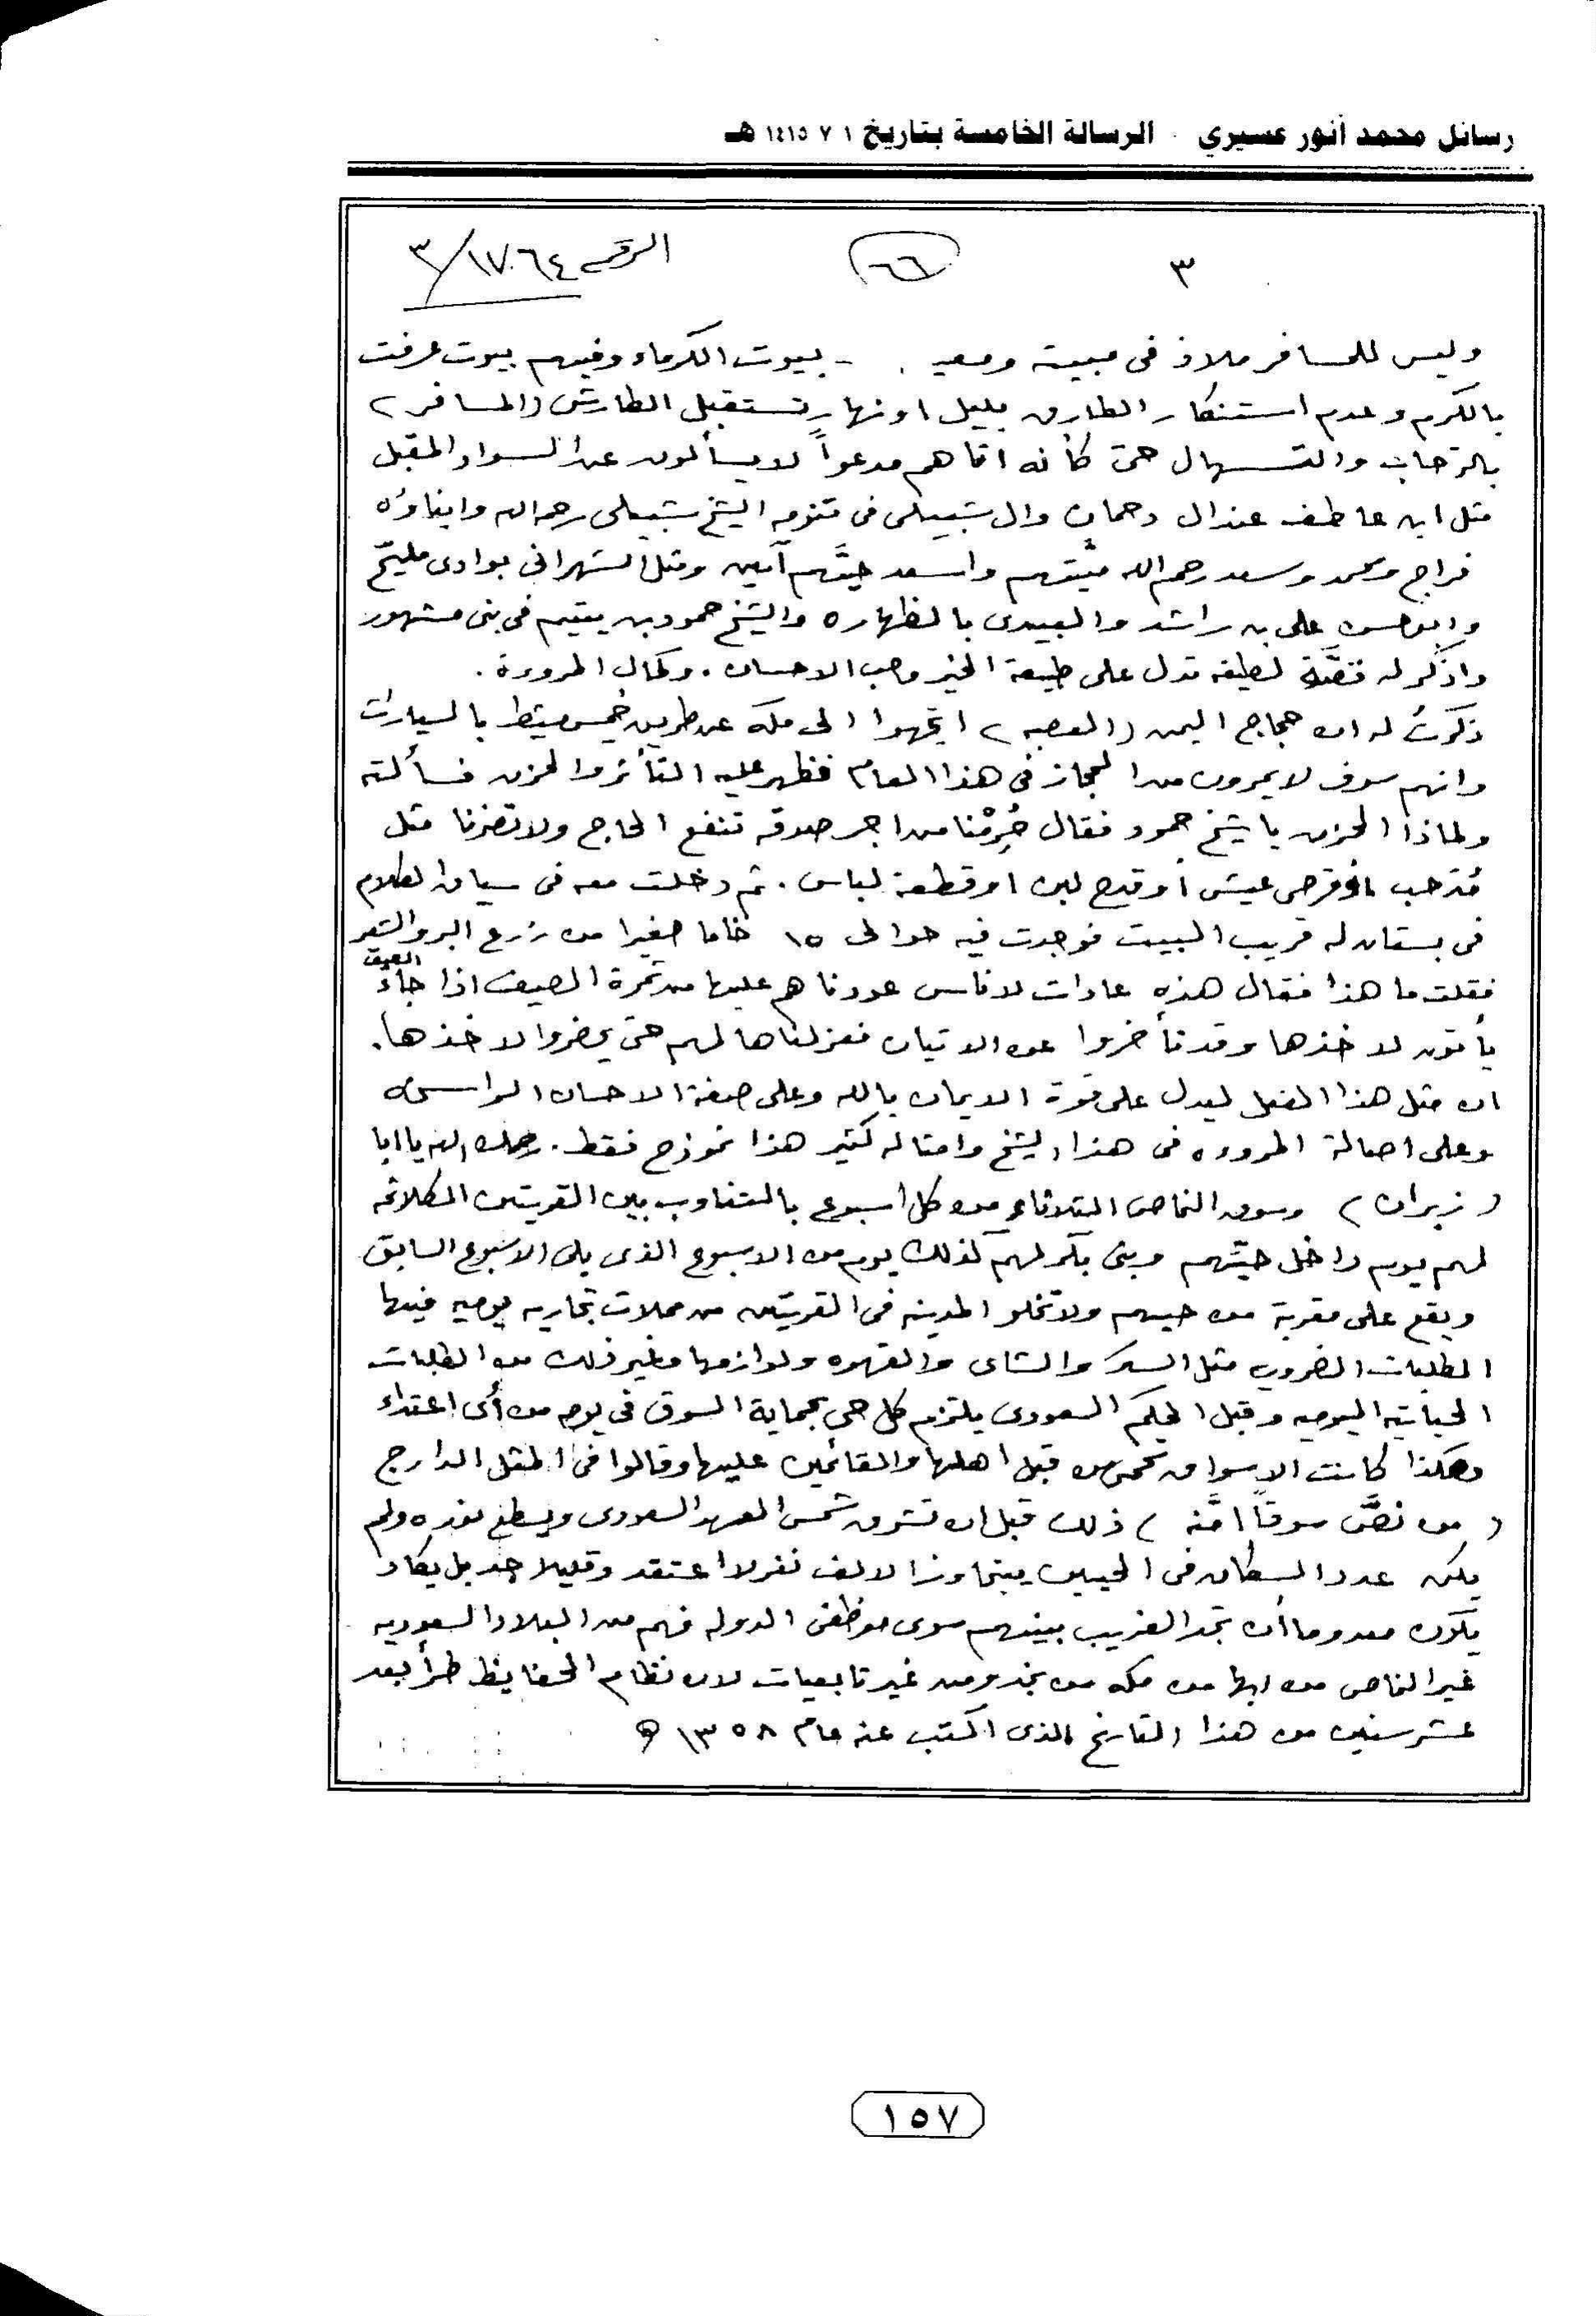 رسائل محمد أنور عسيري . الرسالة الخامسة بتاريخ ١ ٧ ١٤١٥ هـ
٣
٦٦
الرقم ١٧٠٦٤/٣
وليس للمسافر ملاذ في مبيته ومعيـ . - بيوت الكرماء وفيهم بيوت عرفت
بالكرم وعدم استنكار الطارق بليل اونهار تستقبل الطارش (المسافر)
بالترحاب والتسهال حتى كأنه اتاهم مدعواً لا يسألون عن السواد المقبل
مثل ابن عاطف عندال دحمان وال شبيلي في تنومه الشيخ شبيلي رحمه الله وابناؤه
فراج ومحمد وسعد رحم الله ميّتهم واسعد حيَّهم آمين ومثل الشهراني بوادى مليّح
وابوحسن علي بن راشد والعبيدى بالظهاره والشيخ حمود بن يتيم في بني مشهور
واذكر له قصَّة لطيفه تدل على طيبعة الخير وحب الاحسان . وكمال المروءة .
ذكرتُ له ان حجاج اليمن (العصبه) اتجهوا الى مكه عن طريق خميس مشيط بالسيارات
وانهم سوف لا يمرون من الحجاز في هذا العام فظهر عليه التأثر والحزن فسألته
ولماذا الحزن يا شيخ حمود فقال حُرِمْنا من اجر صدقه تنفع الحاج ولا تضرنا مثل
حب او قرص عيش أو قدح لبن او قطعة لباس . ثم دخلت معه في سياق الكلام
في بستان له قريب البيت فوجدت فيه حوالى ١٥ خاما صغيرا من زرع البر والشعير
فقلت ما هذا فقال هذه عادات لاناس عودناهم عليها من ثمرة الصيف اذا جاء الصيف
يأتون لاخذها وقد تأخروا عن الاتيان فعزلناها لهم حتى يحضروا لاخذها .
ان مثل هذا الفعل ليدل على قوة الايمان بالله وعلى صفة الاحسان الراسخه
وعلى اصالة المروءه في هذا الشيخ وامثاله كثير هذا نموذج فقط . رحمك الله يا ابا
(زيران) وسوق النماص الثلاثاء من كل اسبوع بالتناوب بين القريتين الكلاثمه
لهم يوم داخل حيّهم وبني بكر لهم كذلك يوم من الاسبوع الذى يلى الاسبوع السابق
ويقع على مقربة من حيهم ولا تخلو المدينه في القريتين من محلات تجاريه يوميه فيها
الطلبات الضروريه مثل السكر والشاى والقهوه ولوازمها وغير ذلك من الطلبات
الحياتيه اليوميه وقبل الحكم السعودى يلتزم كل حي بحماية السوق في يومه من أى اعتداء
وهكذا كانت الاسواق تحمى من قبل اهلها والقائمين عليها وقالوا في المثل الدارج
(من نصَّ سوقاً امَّنه) ذلك قبل ان تشرق شمس العهد السعودى ويسطع نوره ولم
يكن عدد السكان في الحيين يتجاوز الالف نفر لا اعتقد وقليلا جد بل يكاد
يكون معدوما أن تجد الغريب بينهم سوى موظفى الدوله فهم من البلاد السعوديه
غير النماص من ابها من مكه من نجد ومن غير تابعيات لان نظام الحفايظ طرأ بعد
عشر سنين من هذا التاريخ الذى اكتب عنه عام ١٣٥٨ هـ
١٥٧